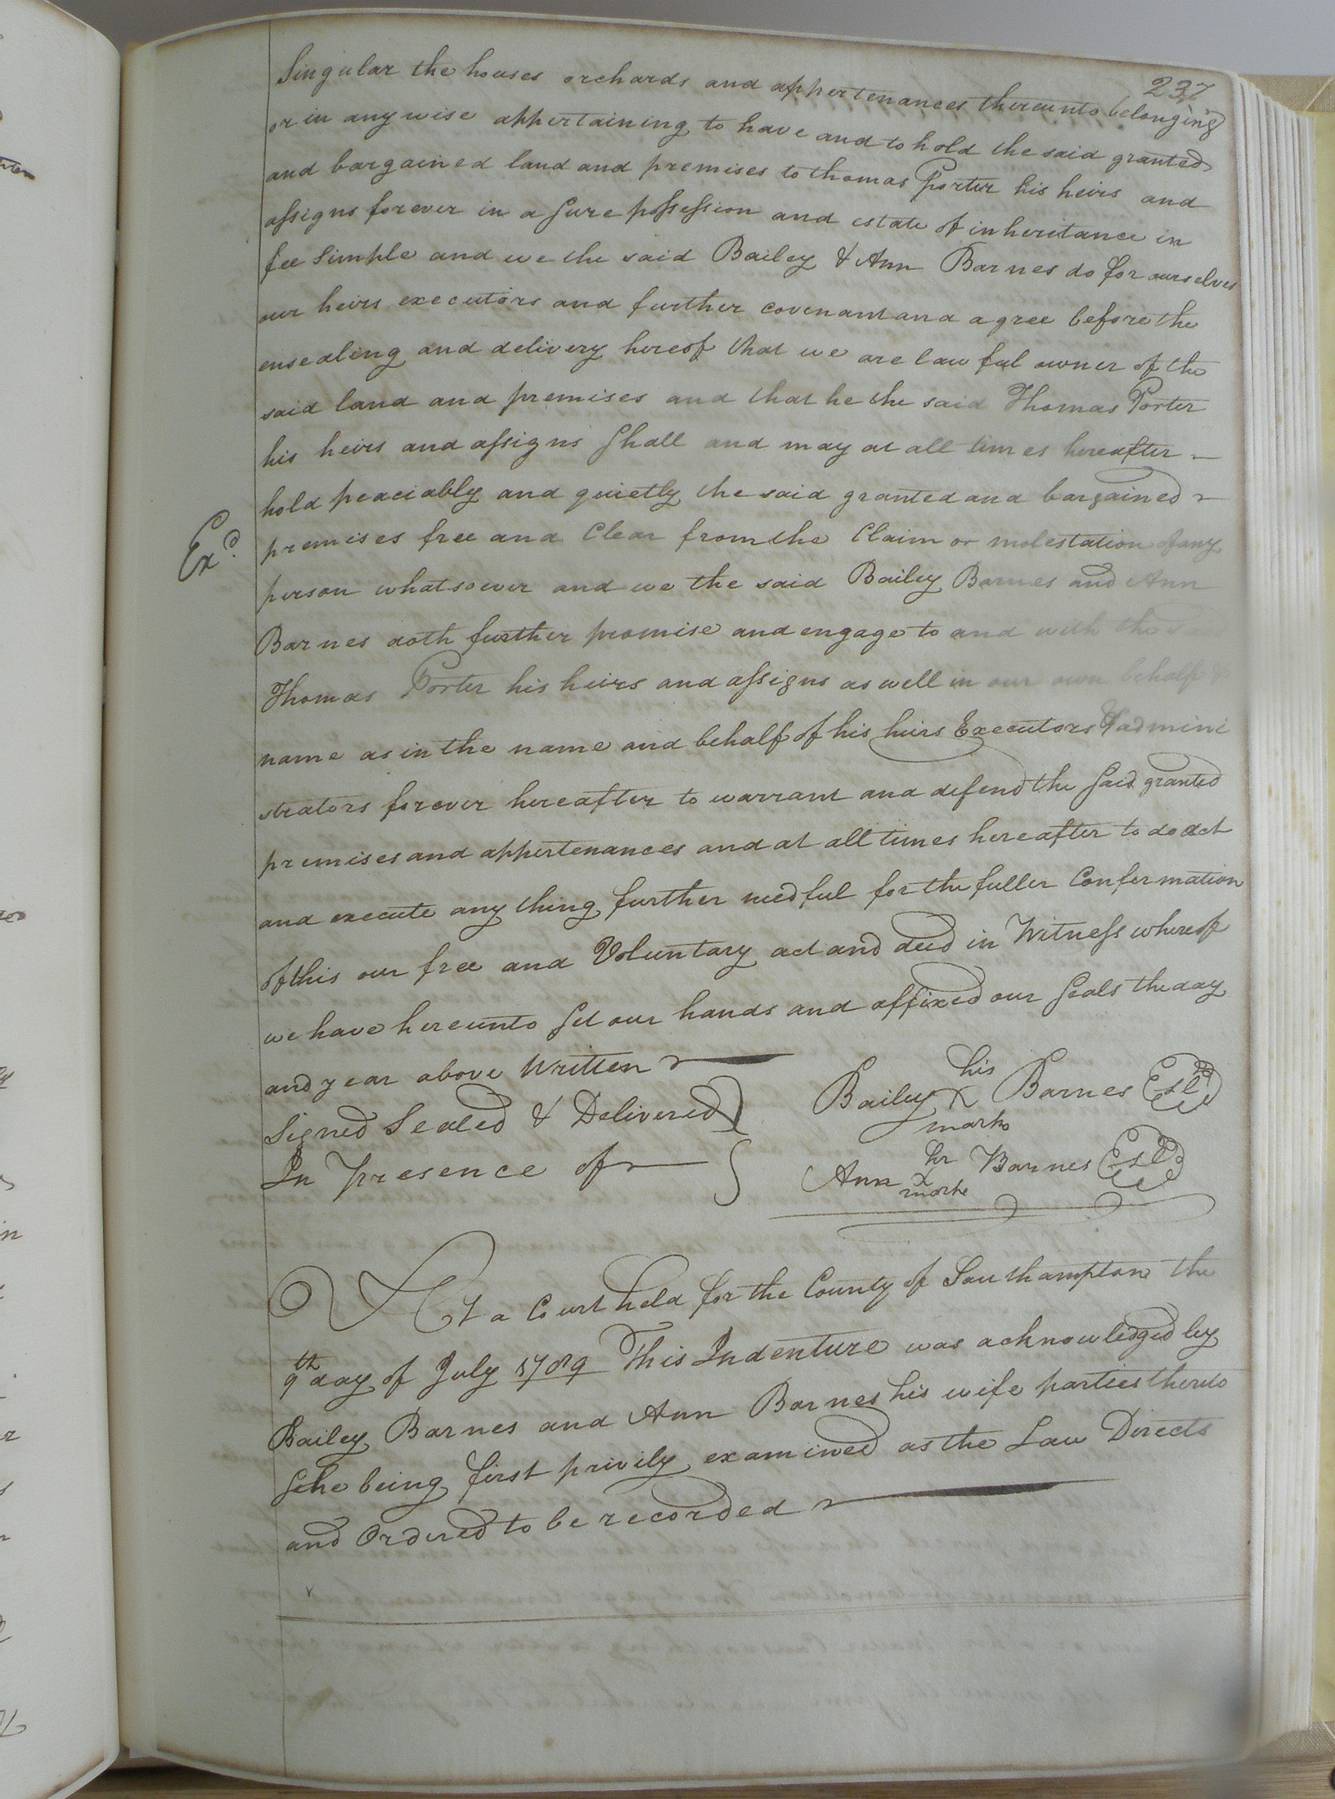 237
Singular the houses orchards and appertenances thereunto belonging
or in any wise appertaining to have and to hold the said granted
and bargained land and premises to thomas Porter his heirs and
assigns forever in a sure possession and estate of inheritance in
fee Simple and we the said Bailey & Ann Barnes do for ourselves
our heirs executors and further covenant and agree before the
ensealing and delivery hereof that we are lawful owner of the
said land and premises and that he the said Thomas Porter
his heirs and assigns shall and may at all times hereafter
hold peaciably and quietly the said granted and bargained
Exd.
premises free and Clear from the Claim or molestation of any
person whatsoever and we the said Bailey Barnes and Ann
Barnes doth further promise and engage to and with the
Thomas Porter his heirs and assigns as well in our own behalf &
name as in the name and behalf of his heirs Executors & admini
strators forever hereafter to warrant and defend the said granted
premises and appertenances and at all times hereafter to do act
and execute any thing further needful for the fuller Confermation
of this our free and Voluntary act and deed in Witness whereof
we have hereunto set our hands and affixed our seals the day
and year above Written
Signed Sealed & Delivered
In Presence of
his
Bailey X Barnes
mark
hr
Ann X Barnes
marke
At a Court held for the County of Southampton the
9th day of July 1789 This Indenture was acknowledged by
Bailey Barnes and Ann Barnes his wife parties thereto
She being first privily examined as the Law Directs
and Ordered to be recorded